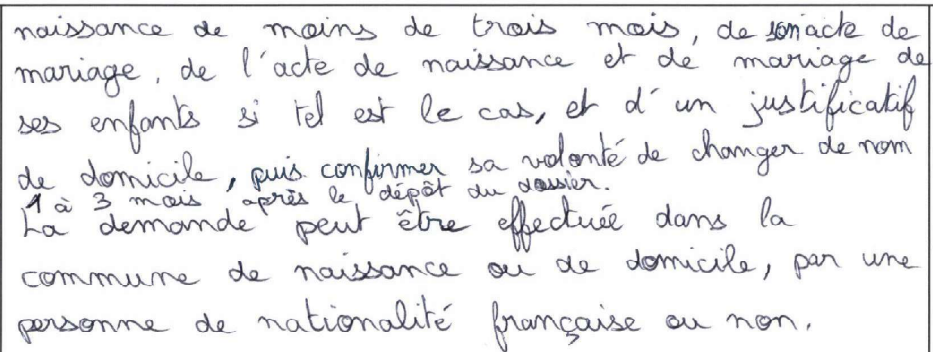 naissance de moins de trois mois, de son acte de
mariage, de l'acte de naissance et de mariage de
ses enfants si tel est le cas, et d'un justificatif
de domicile, puis confirmer sa volonté de changer de nom
1 à 3 mois après le dépôt du dossier.
La demande peut être effectuée dans la
commune de naissance ou de domicile, par une
personne de nationalité française ou non.